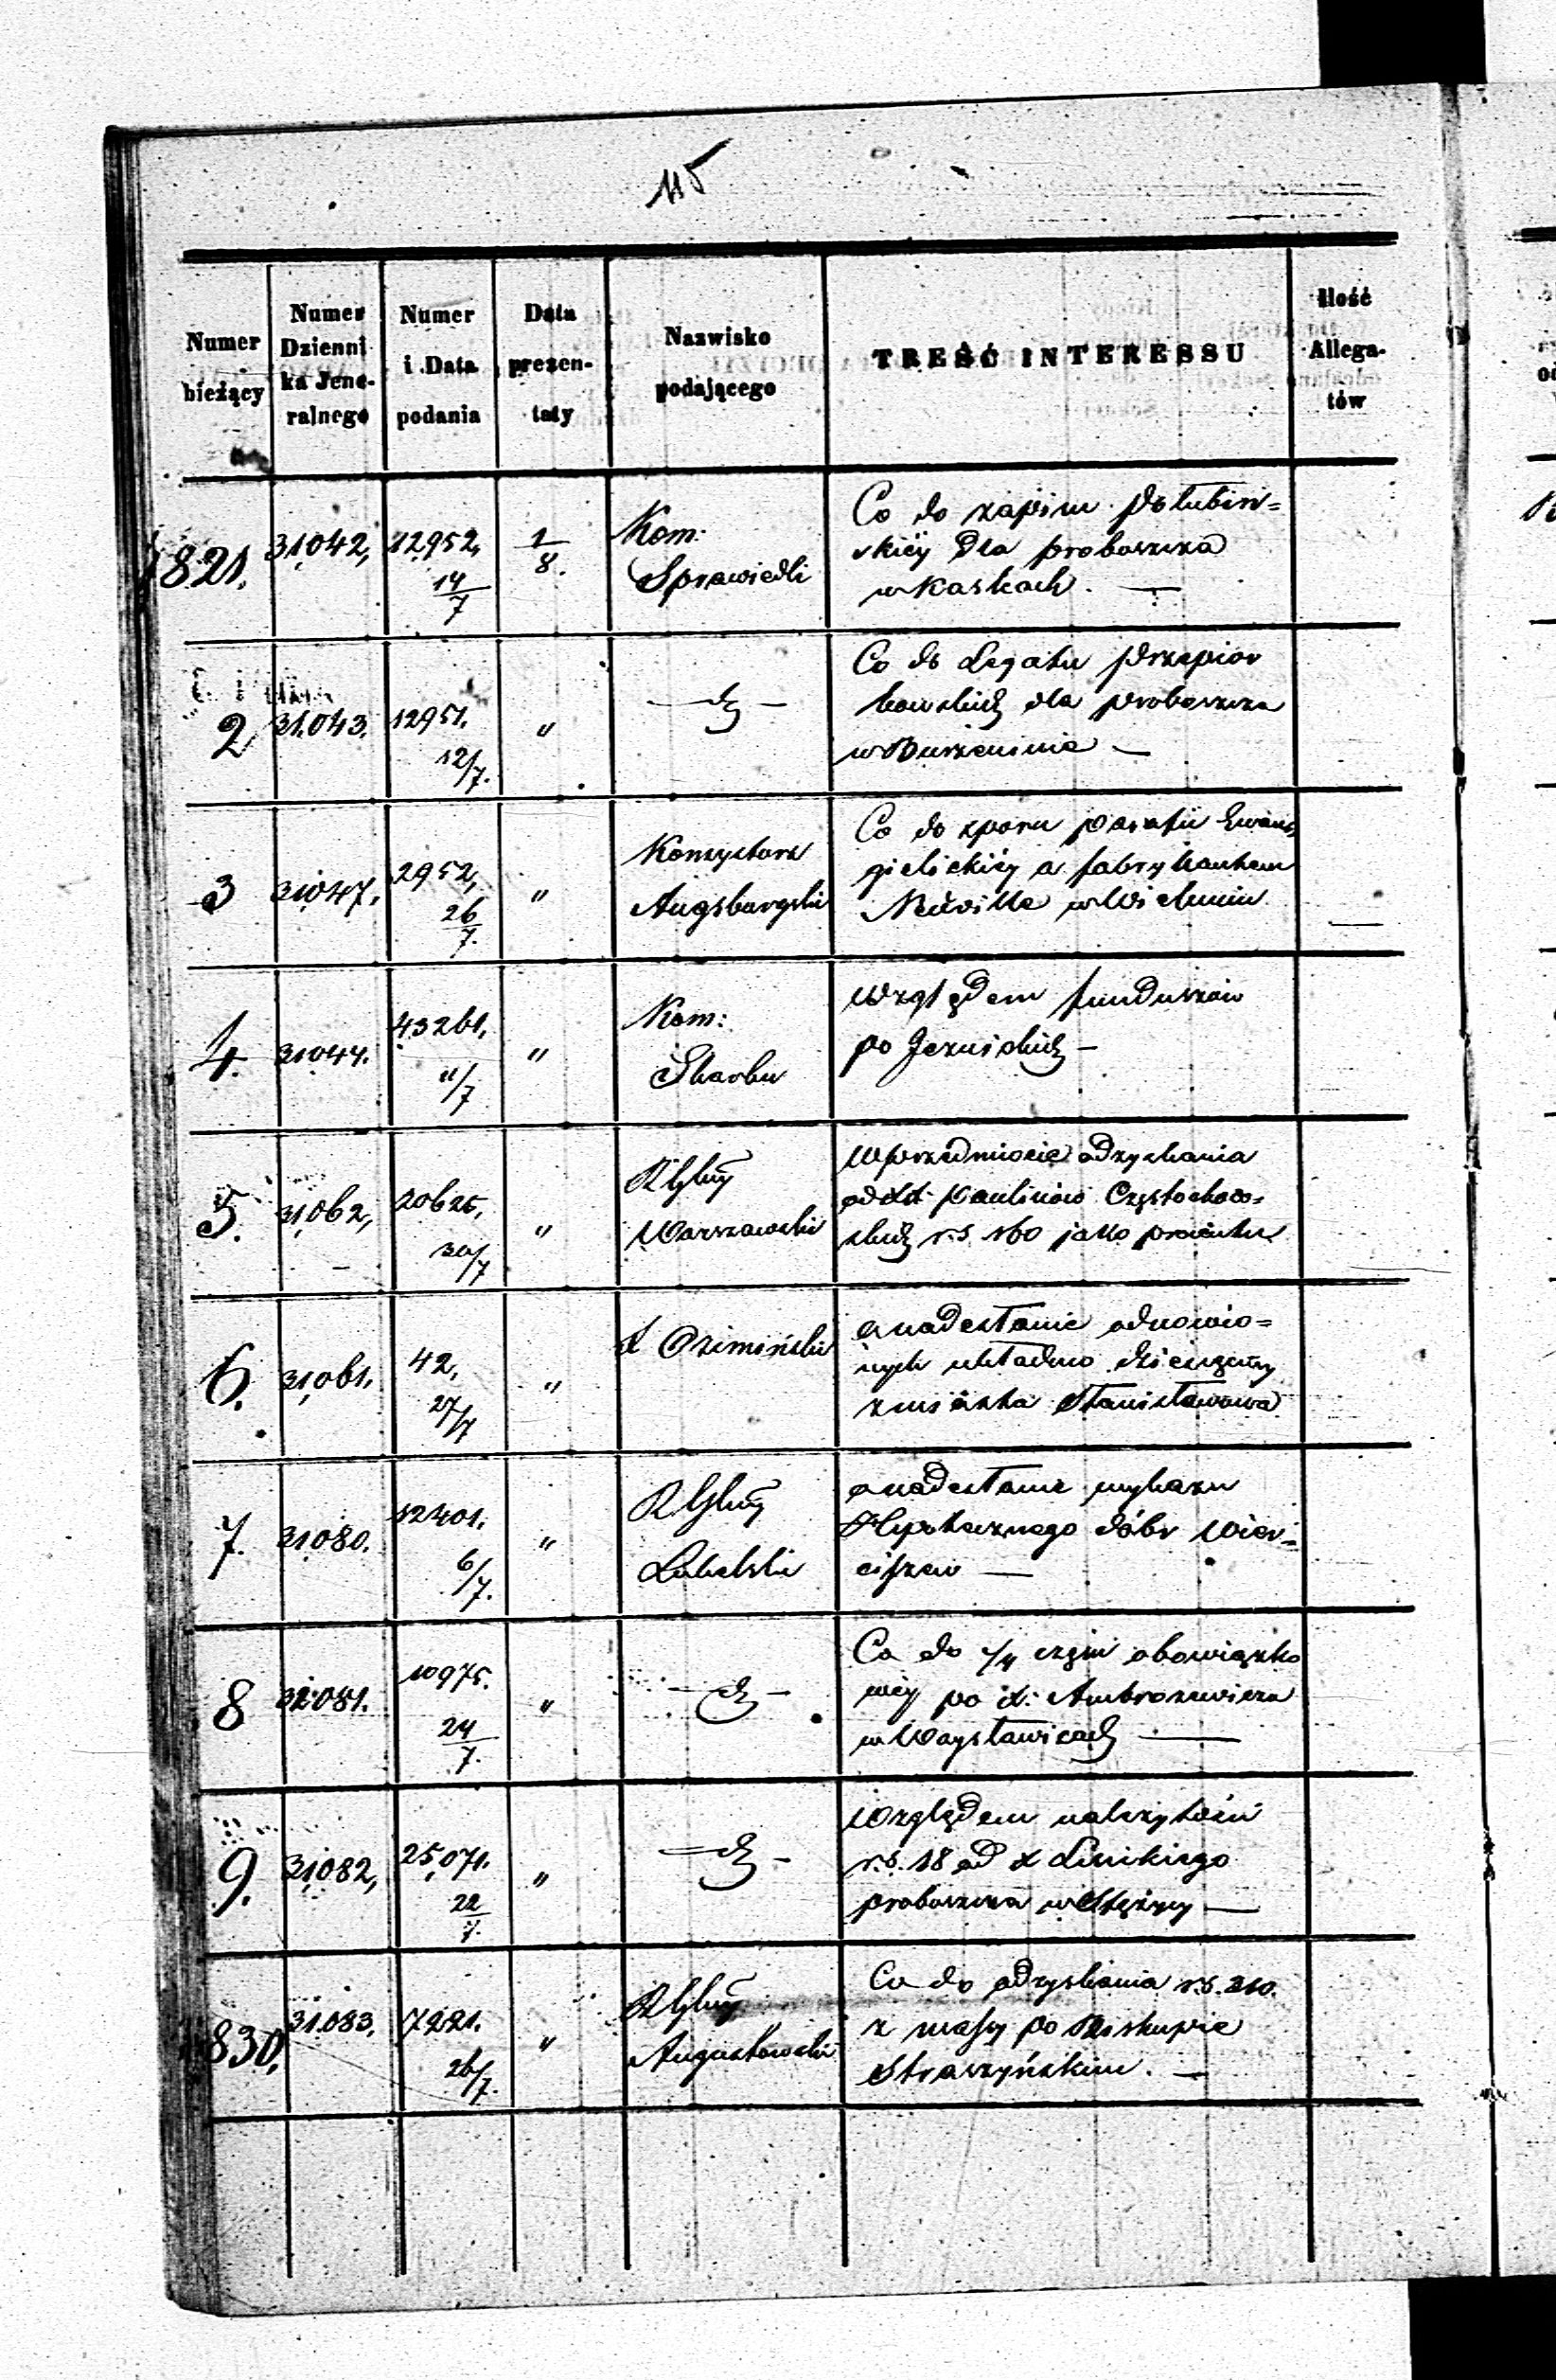 115
Numer bieżący | Numer Dziennika Jeneralnego | Numer i Data podania | Data prezentaty | Nazwisko podającego | TREŚĆ INTERESSU | Ilość Allegatów
1821. 31042, 12952, 14/7 1/8. Kom: Sprawiedli
Co do zapisu Połubiń=
skiéy dla proboszcza
w Kaskach. —
2 31.043. 12951. 12/7. "
Co do Legatu Przepiór
kowskich dla Proboszcza
w Burzeninie —
3 31047. 2952, 26/7. " Konsystorz Augsburgski
Co do sporu parafii Ewan=
gielickiéy a fabrykantem
w Wieluniu
4. 31044. 43261, 11/7 " Kom: Skarbu
Względem funduszów
po Jezuickich —
5. 31062, 20625, 30/7 " Warszawski
W przedmiocie odzyskania
od XX. Paulinów Częstochow=
skich r.s. 160 jako procentu
6. 31,061. 42, 27/7 " X Ozimiński
o nadesłanie odnowio=
nych układów dzierżawy
z miasta Stanisławowa
7. 31080. 12401. 6/7. " Lubelski
o nadesłanie wykazu
Hypotecznego dóbr Wier=
ciszew —
8 31081. 10975. 24/7. "
Co do 1/4 części obowiązko
wéy po X. Ambrozewicza
w Woysławicach —
9. 31,082, 25,071. 22/7. "
Względem należytości
r.s. 18 od X
proboszcza w Stężycy —
1830. 31.083. 7221. 26/7. " Augustowski
Co do odzyskania r.s. 210.
z massy po Biskupie
Straszyńskim. —